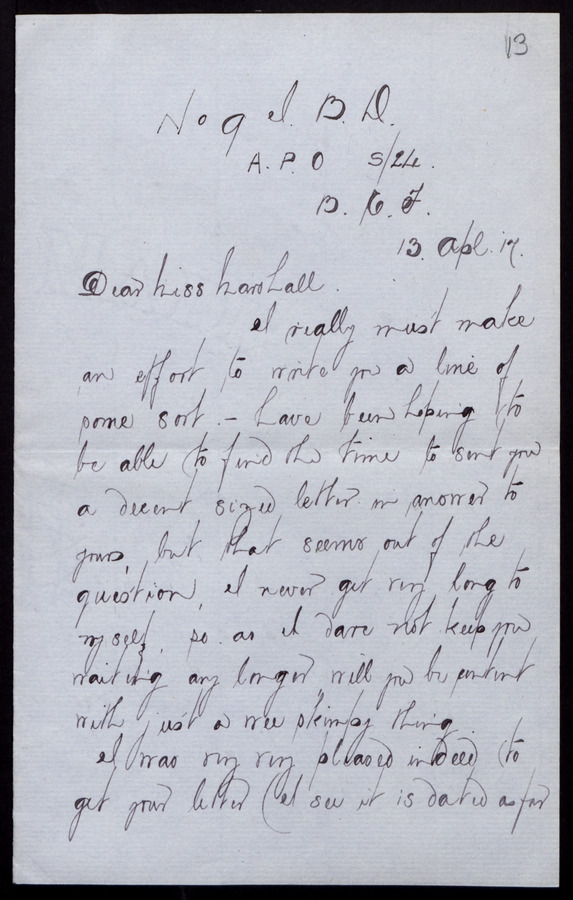 13
No 9 I. B. D.
A. P. O S/24.
B. E. F.
13. Apl. 17.
Dear Miss Marshall.
I really must make
an effort to write you a line of
some sort. – have been hoping to
be able to find the time to sent you
a decent sized letter in answer to
yours, but that seems out of the
question, I never get very long to
myself, so as I dare not keep you
waiting any longer, will you be content
with just a wee skimpy thing.
I was very very pleased indeed to
get your letter (I see it is dated as far